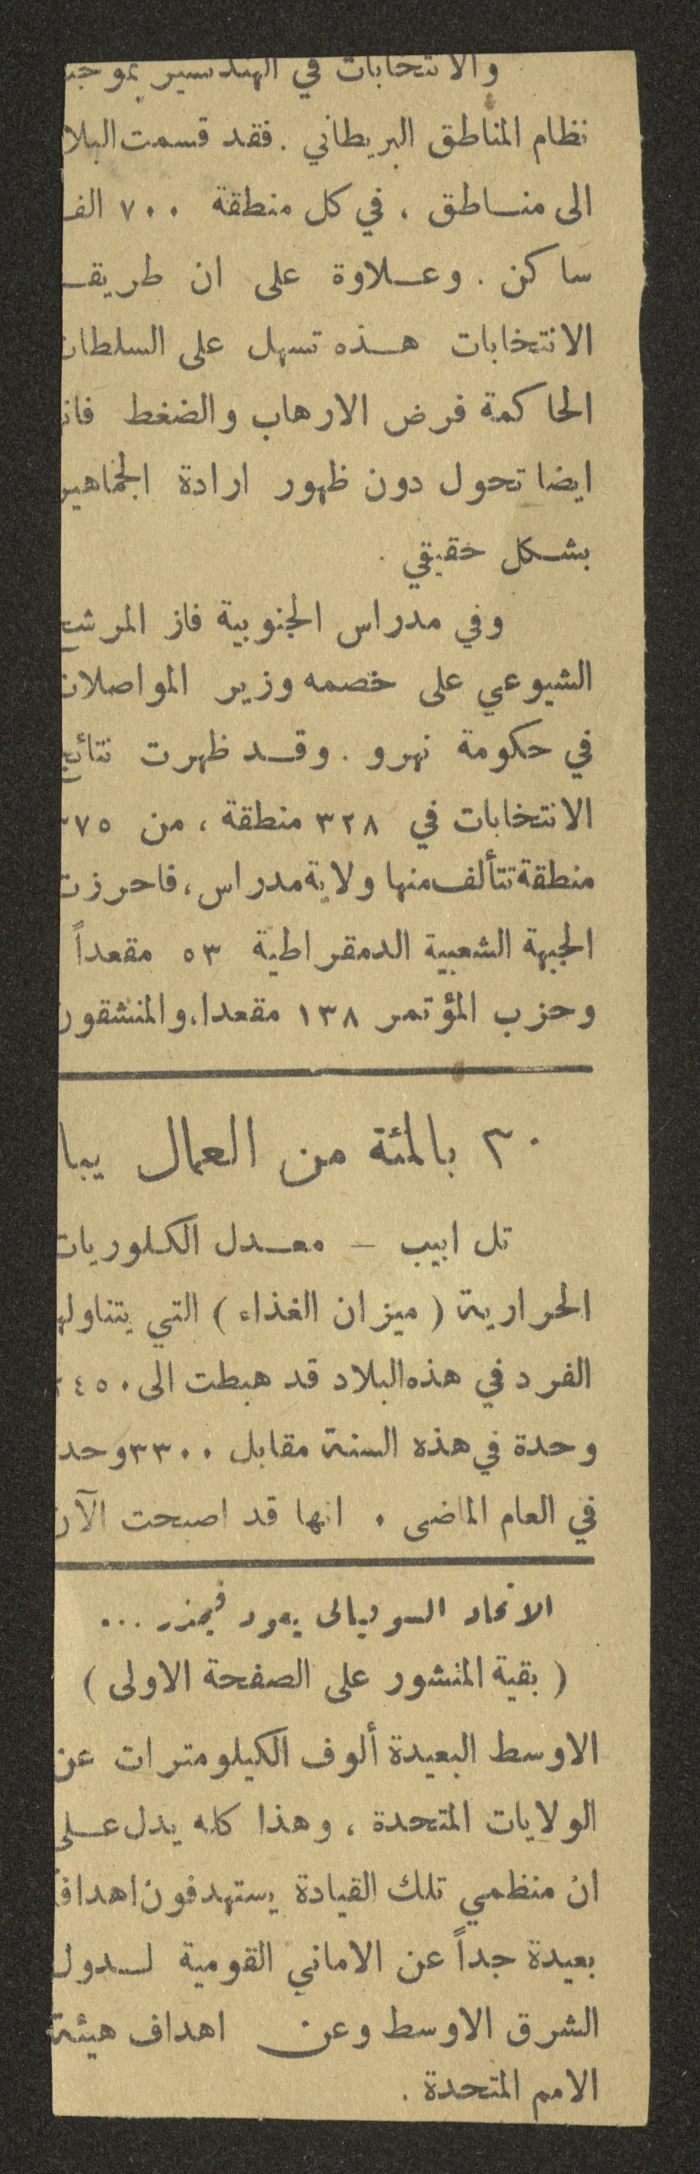 والانتخابات في الهند تسير بموجب
نظام المناطق البريطاني . فقد قسمت البلا
الى منـاطق ، في كل منطقة ٧٠٠ الف
ساكن . وعـلاوة على ان طريقـ
الانتخابات هـذه تسهل على السلطات
الحاكمة فرض الارهاب والضغط فانـ
ايضا تحول دون ظهور ارادة الجماهير
بشكل حقيقي .
وفي مدراس الجنوبية فاز المرشح
الشيوعي على خصمه وزير المواصلات
في حكومة نهرو . وقـد ظهرت نتائج
الانتخابات في ٣٢٨ منطقة ، من ٣٧٥
منطقة تتألف منها ولاية مدراس ، فاحرزت
الجبهة الشعبية الدمقراطية ٥٣ مقعداً
وحزب المؤتمر ١٣٨ مقعدا، والمنشقون
٣٠ بالمئة من العمال يبا
تل ابيب — معـدل الكلوريات
الحرارية ( ميزان الغذاء ) التي يتناولها
الفرد في هذه البلاد قد هبطت الى ٢٤٥٠
وحدة في هذه السنة مقابل ٣٣٠٠ وحد
في العام الماضى . انها قد اصبحت الآن
الاتحاد السوفياتي يعود فيحذر ...
( بقية المنشور على الصفحة الاولى )
الاوسط البعيدة ألوف الكيلومترات عن
الولايات المتحدة ، وهذا كله يدل عـلى
ان منظمي تلك القيادة يستهدفون اهدافاً
بعيدة جداً عن الاماني القومية لـدول
الشرق الاوسط وعن اهداف هيئة
الامم المتحدة .